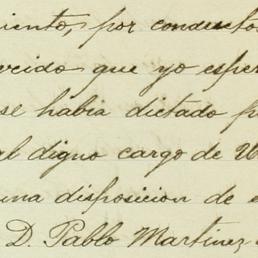 miento, por conducto
recido que yo esper
se habia dictado p
al digno cargo de
una disposicion de e
D. Pablo Martinez